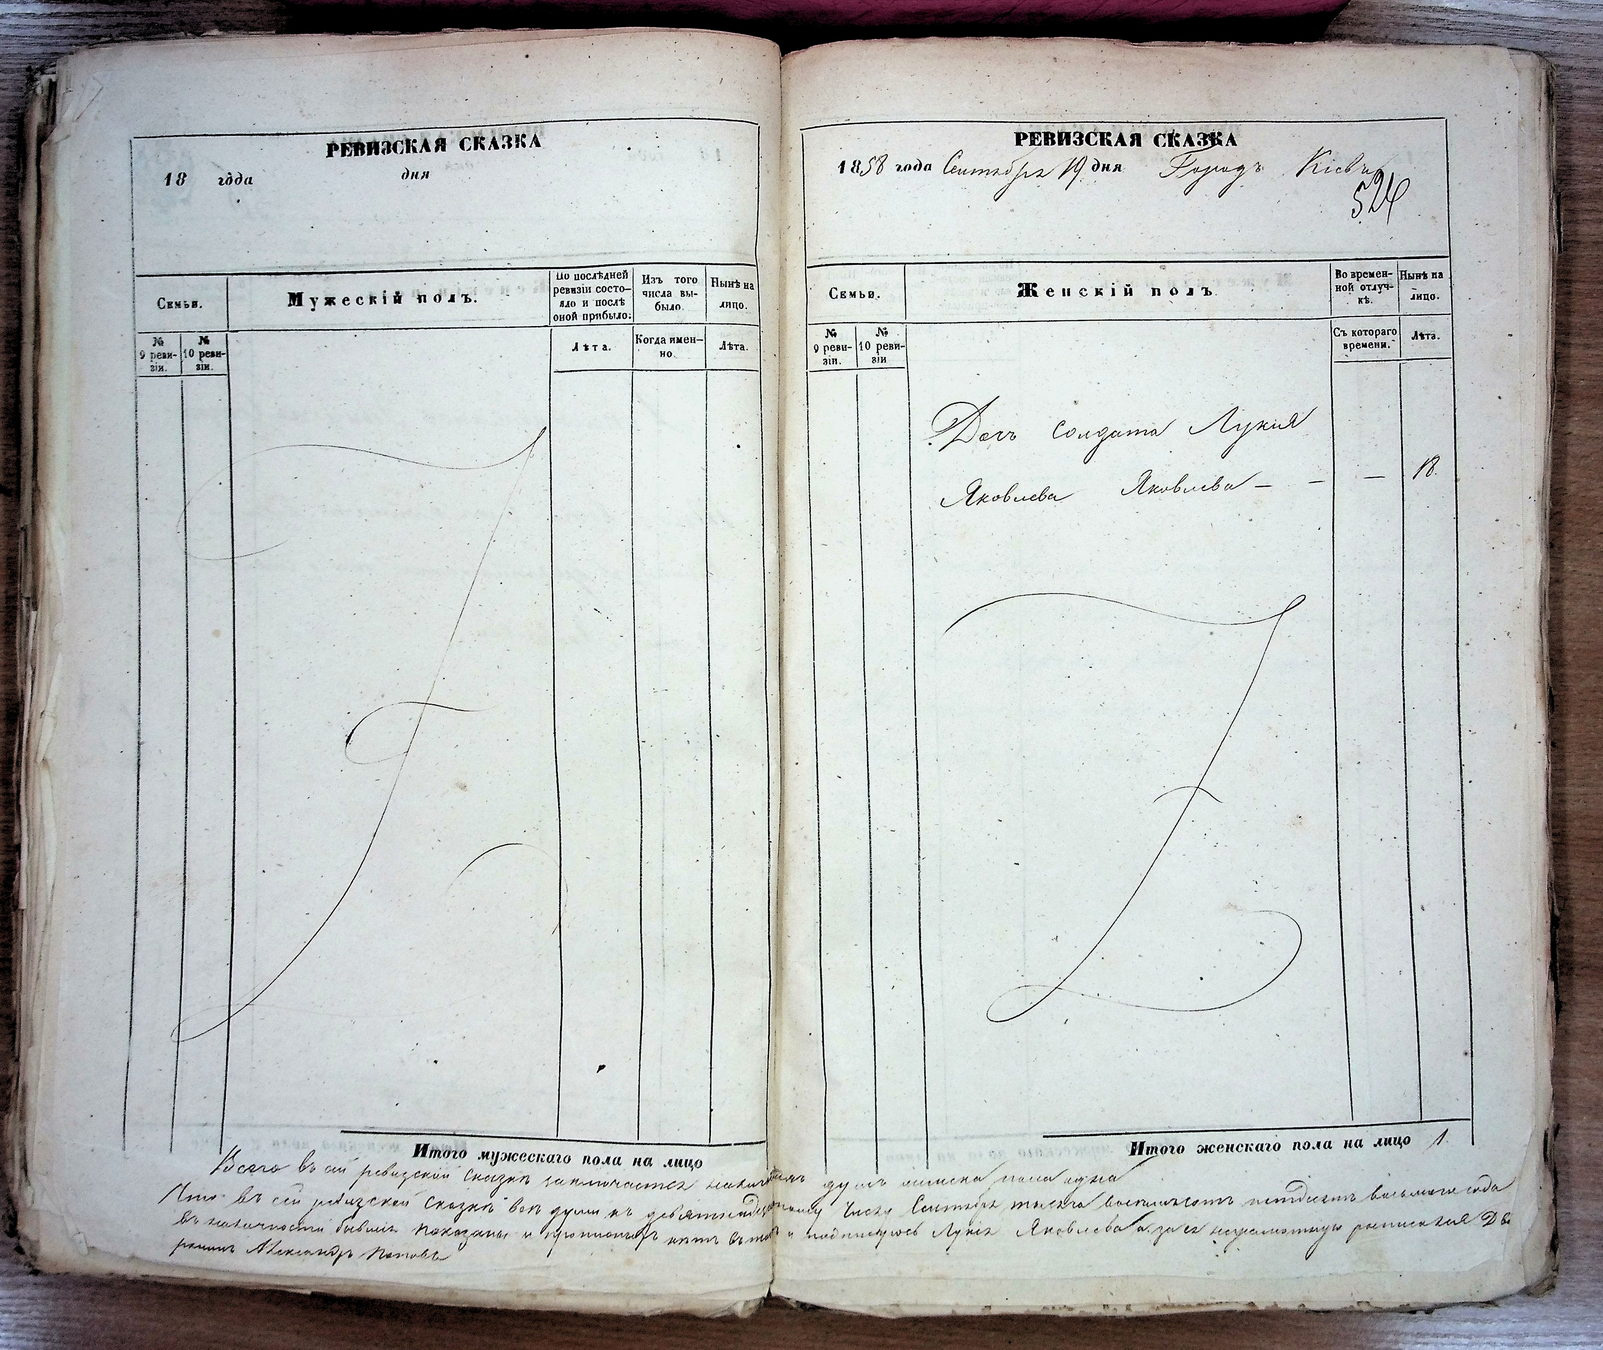 РЕВИЗСКАЯ СКАЗКА
18 года дня
Семьи.
Мужескій полъ.
По послѣдней ревизіи состояло и послѣ оной прибыло.
Изъ того числа выбыло.
Нынѣ на лицо.
№ 9 ревизіи.
№ 10 ревизіи.
Лѣта.
Когда именно.
Лѣта.
Итого мужескаго пола на лицо
РЕВИЗСКАЯ СКАЗКА
1858 года Сентября 19 дня Городъ Кіевъ
524
Семьи.
Женскій полъ.
Во временной отлучкѣ.
Нынѣ на лицо.
№ 9 ревизіи.
№ 10 ревизіи
Съ котораго времени.
Лѣта.
Дочь солдата Лукія
Яковлева Яковлева — - — 18.
Итого женскаго пола на лицо 1.
Всего въ сей ревизской сказкѣ заключается наличныхъ душъ женска пола одна
Что въ сей ревизской сказкѣ всѣ души къ девятнадцатому числу Сентября тысяча восемьсотъ пятдесятъ восьмаго года
въ наличности бывшія показаны и прописныхъ нѣтъ въ томъ и подписуюсь Лукія Яковлева а за ея неграмотную росписался Дво
рянинъ Александръ Поповъ